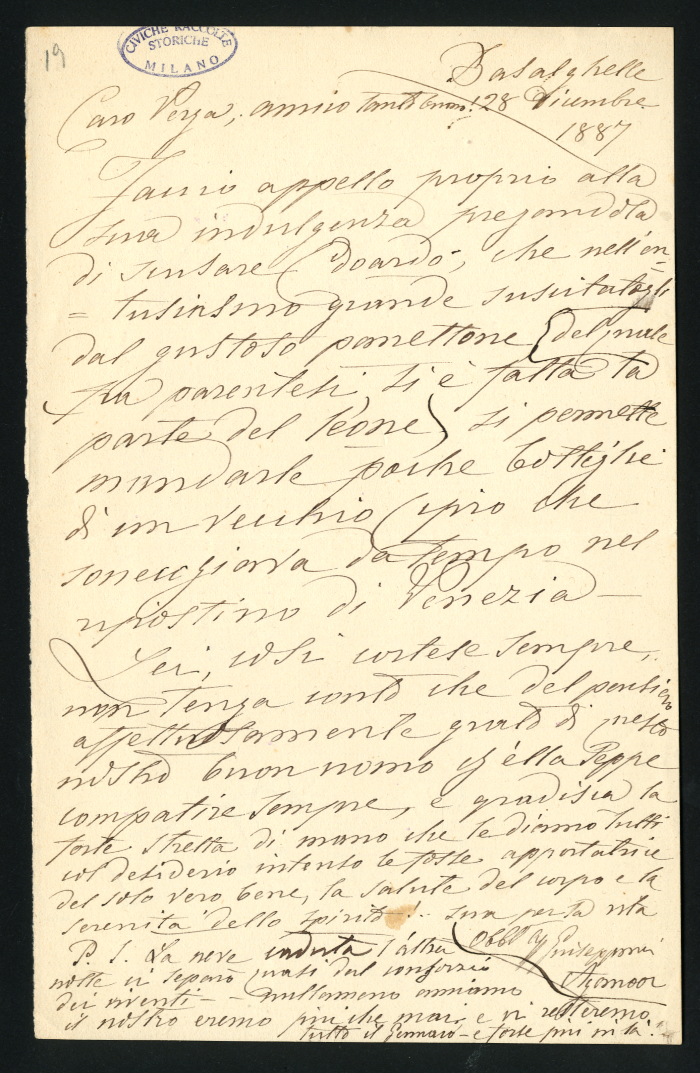 19
CIVICHE RACCOLTE
STORICHE
MILANO
Basalghelle
Caro Verga, amico 28 Dicembre
1887
Faccio appello proprio alla
sua indulgenza pregandola
di scusare Odoardo, che nell'en-
=tusiasmo grande suscitatogli
dal gustoso panettone (del quale
fra parentesi, si è fatta la
parte del leone) si permette
mandarle poche bottiglie
di un vecchio Cipro che
sonecchiava da tempo nel
ripostino di Venezia—
Lei, così cortese sempre,
non tenga conto che del pensiero
affettuosamente grato di questo
nostro buon uomo
compatire sempre, e gradisca la
forte stretta di mano che le diamo tutti
col desiderio intenso le fosse apportatrice
del solo vero bene, la salute del corpo e la
serenità dello spirito!— sua per la vita
P. S. La neve caduta l'altra
notte ci separò quasi dal consorzio
dei viventi— nullameno amiamo
il nostro eremo più che mai e vi resteremo
tutto il Gennaro e forse più in là!